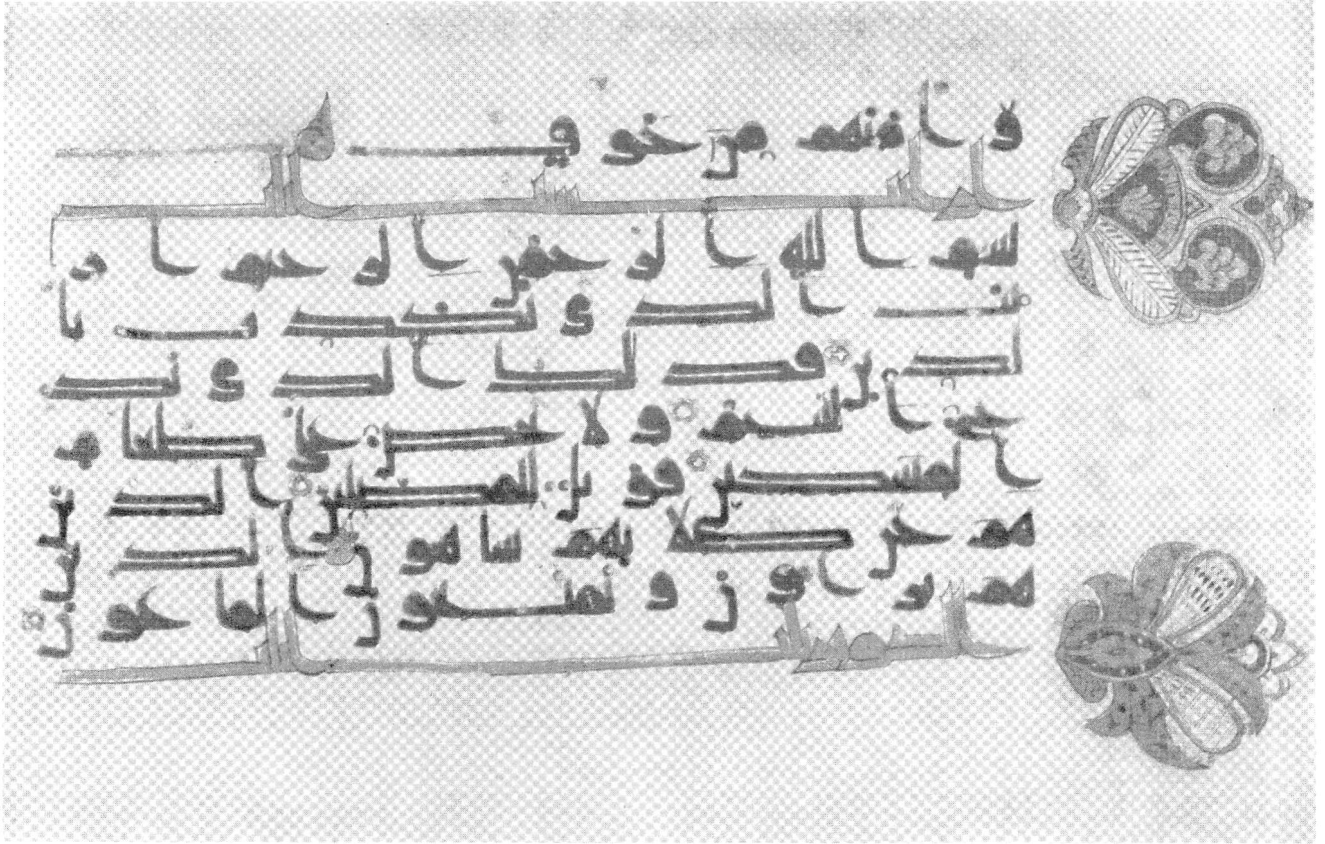 و ا منهم من خو ف
بسم ا لله ا لر حمن ا لر حيم ا ر
يت ا لذ ي يكذ ب با
لد ين فذ لك ا لذ ي يد
ع ا ليتيم و لا يحض على طعا م
ا لمسكين فو يل للمصلين ا لذ ين
هم عن صلا تهم سا هو ن ا لذ ين
هم ير ا و ن و يمنعو ن ا لما عو ن